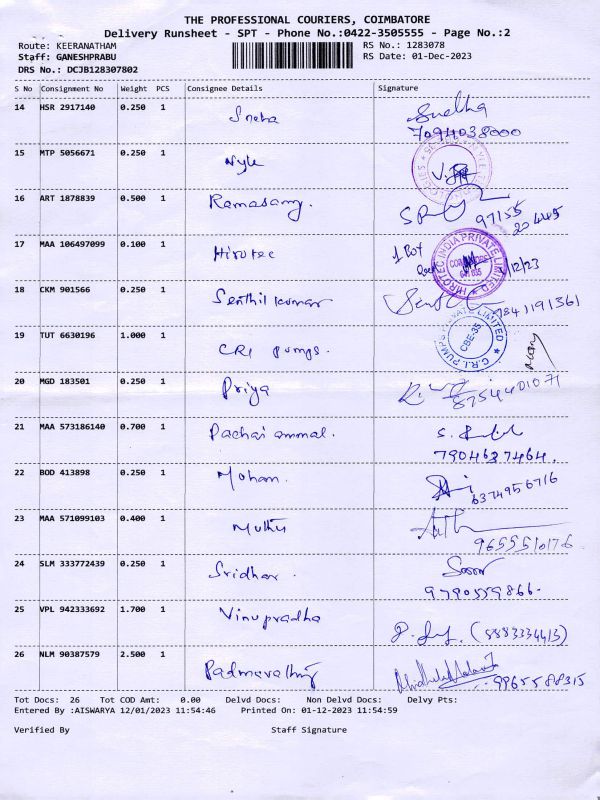 THE PROFESSIONAL COURIERS, COIMBATORE
Delivery Runsheet - SPT - Phone No.:0422-3505555 - Page No.:2
Route: KEERANATHAM RS No.: 1283078
Staff: GANESHPRABU RS Date: 01-Dec-2023
DRS No.: DCJB128307802
S No Consignment No Weight PCS Consignee Details Signature
14 HSR 2917140 0.250 1 Sneha Sneha
7094038000
15 MTP 5056671 0.250 1 Nyle
16 ART 1878839 0.500 1 Ramasamy. 97155
20445
17 MAA 106497099 0.100 1 Hirotec 1 Box
HIROTEC INDIA PRIVATE LIMITED
18 CKM 901566 0.250 1 Senthil kumar 7841191361
19 TUT 6630196 1.000 1 CRI pumps. C.R.I. PUMPS PRIVATE LIMITED
CBE-35
20 MGD 183501 0.250 1 Priya
21 MAA 573186140 0.700 1 Pachai ammal.
7904687464.
22 BOD 413898 0.250 1 Mohan.
6374956716
23 MAA 571099103 0.400 1 Muthu
9655510176
24 SLM 333772439 0.250 1 Sridhar.
9790559866.
25 VPL 942333692 1.700 1 Vinupradha
(8883334413)
26 NLM 90387579 2.500 1 Padmavathy
9965588315
Tot Docs: 26 Tot COD Amt: 0.00 Delvd Docs: Non Delvd Docs: Delvy Pts:
Entered By :AISWARYA 12/01/2023 11:54:46 Printed On: 01-12-2023 11:54:59
Verified By Staff Signature